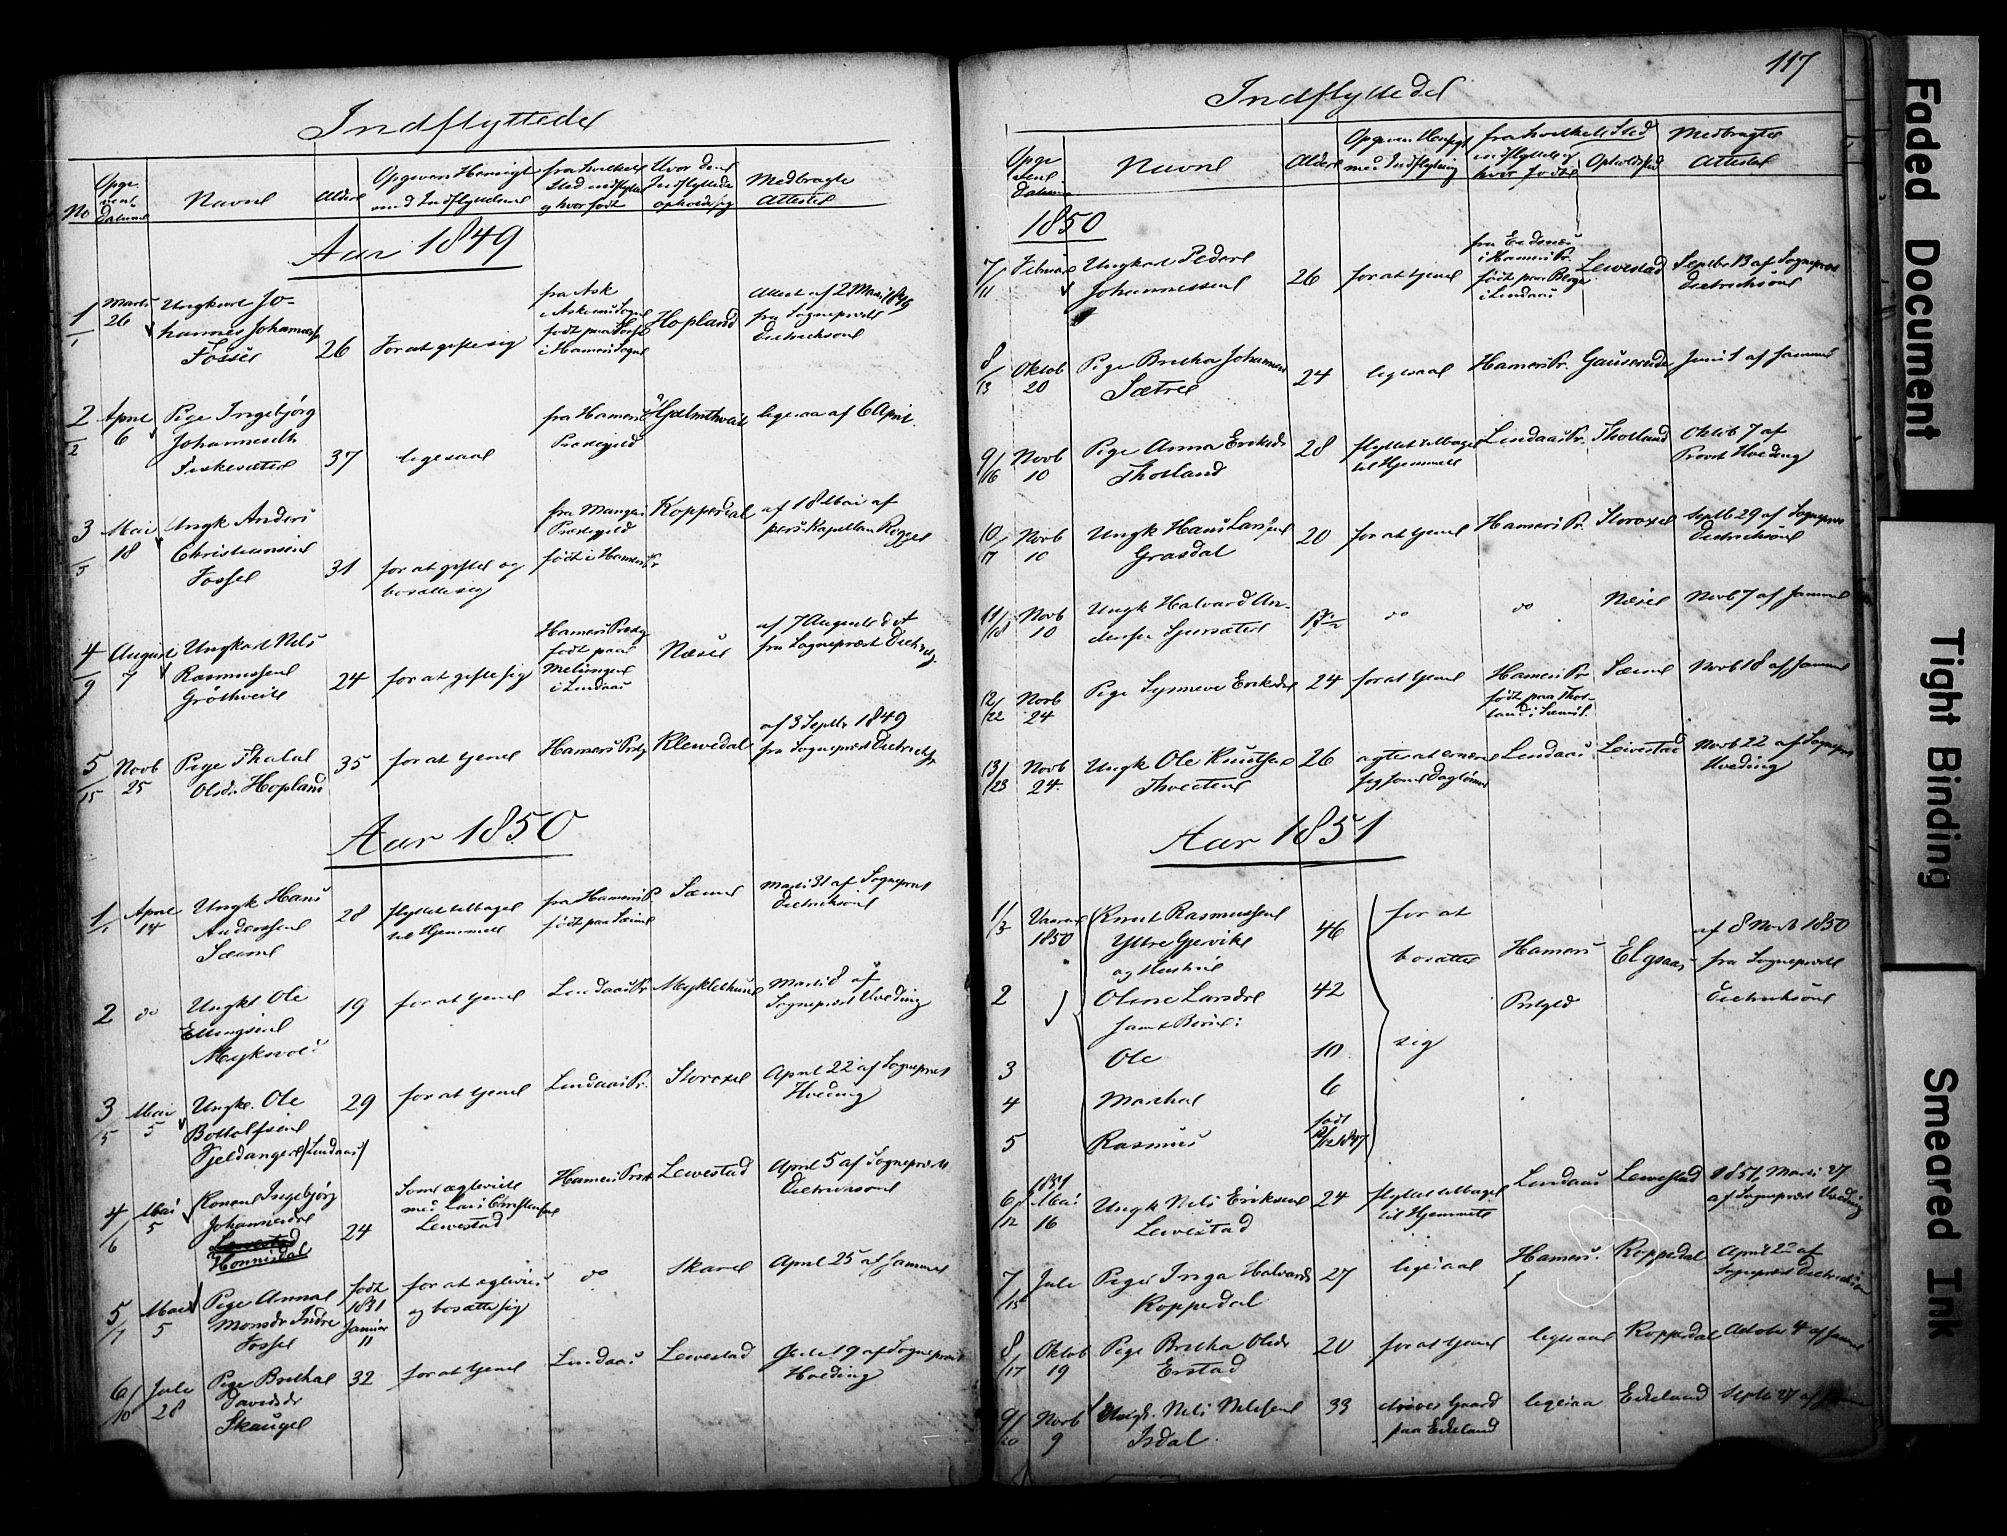 Indflyttede
No
Opgivent Datum
Navne
Alder
Opgiven Hensigt med Indflyttelse
fra hvilket Sted indflyttet og hvor født
Hvor den Indflyttede opholder sig
Medbragte Attester
Aar 1849
1/1 Marts 26 Ungkarl Johannes Johannes Fosse 26 For at gifte sig fra Ask født paa Fosse i Hamers Sogn Hopland Attest af 2 Marts fra Sognepræst Dietrichson
2/2 April 6 Pige Ingebjørg Johannesdtr Fiskesæter 37 ligesaa fra Hamers Præstegjeld Hjelmtveit ligesaa af 6 April
3/5 Mai 18 Ungk Anders Christiansen Fosse 31 for at gifte og bosætte sig fra Manger Præstegjeld født i Hamers Koppedal af 18 Mai af pers. Kapellan
4/9 August 7 Ungkarl Nils Rasmussen Grøthveite 24 for at gifte sig Hamers født paa i Lindaas Næse af 7 August fra Sognepræst Dietrichs
5/15 Novb 25 Pige Olsdr Hopland 35 for at tjene Hamers Klevedal af 3 Septbr 1849 fra Sognepræst Dietrichs
Aar 1850
1/1 April 14 Ungk Hans Anderssen Sæime 28 flyttet tilbage til Hjemmet fra Hamers Pr. født paa Sæime Sæime Marts 31 af Sognepræst Dietrichson
2 do Ungk Ole Ellingsen 19 for at tjene Lindaas Pr Mykletun Marts 8 af Sognepræst Hveding
3/5 Mai 5 Ungk. Ole Bottolfsen Fjeldanger (Lindaas) 29 for at tjene Lindaas Pr. Storoxe April 22 af Sognepræst Hveding
4/6 Mai 5 Konen Ingebjørg Johannesdr Levestad Honnisdal 24 Som ægteviet med Lars Christensen Levestad Hamers Prst Levestad April 5 af Sognepræst Dietrichson
5/7 Mai 5 Pige Anna Monsdr Indre Fosse født 1831 Januar 11 for at ægtevies og bosætte sig do Skare April 25 af samme
6/10 Juli 28 Pige Brithe Davidsdr Skauge 32 for at tjene Lindaas Levestad 9 af Sognepræst Hveding
117
Indflyttede
Opgivne Datum
Navne
Alder
Opgiven Hensigt med Indflytning
fra hvilket Sted indflyttet og hvor født
Opholdsted
Medbragte Attester
1850
7/11 Februar Ungkarl Peder Johannessen 26 for at tjene fra Eidsnes i Hamers Pr. født paa Berge i Lindaas Levestad Septbr 13 af Sognepræst Dietrichson
8/13 Oktob 20 Pige Brithe Johannes Sætre 24 ligesaa Hamers Pr. Juni 1 af samme
9/16 Novb 10 Pige Anna Eriksdr Thotland 28 flyttet tilbage til Hjemmet Lindaas Pr. Thotland Oktob 7 af Provst Hveding
10/17 Novb 10 Ungk Hans Larssen Grasdal 20 for at tjene Hamers Pr. Storoxe Septb 29 af Sognepræst Dietrichson
11/18 Novb 10 Ungk Halvard Andersen do do Næse Novb 7 af samme
12/22 Novb 24 Pige Synneve Eriksdr 24 for at tjene Hamers Pr. født paa Sæime Novb 18 af samme
13/23 Novb 24 Ungk Ole Knutsen Thveiten 26 agter at ernære sig som Daglønner Lindaas Levestad Novb 22 af Sognepræst Hveding
Aar 1851
1/3 1850 Knut Rasmussen Yttre Gjervik og Hustru 46 for at bosætte sig Hamers Elgsaas af 8 Novb 1850 fra Sognepræst Dietrichson
2 Oline Larsdr samt Børn: 42
3 Ole 10
4 Marthe 6
5 Rasmus født 1847
6/12 1851 Mai 16 Ungk Nils Eriksen Levestad 24 flyttet tilbage til Hjemmet Lindaas Levestad 1851 Marts 27 af Sognepræst Hveding
7/15 Juli Pige Inga Halvardsdr Koppedal 27 ligesaa Hamers. Koppedal April 22 af Sognepræst Dietrichson
8/17 Oktob 19 Pige Brithe Olsdr Erstad 20 for at tjene ligesaa Koppedal Oktober 4 af samme
9/20 Novb 9 Ungk. Nils Nilssen Isdal 33 Gaard paa Eikeland ligesaa Eikeland Septb 27 af samme
Faded Document
Tight Binding
Smeared Ink